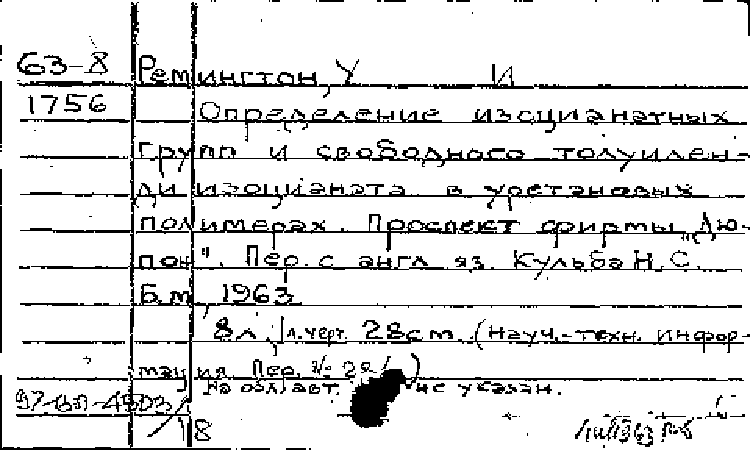 63-8 Ремингтон, У И
1756 Определение изоцианатных
групп и свободного толуилен-
ди изоцианата в уретановых
полимерах. Проспект фирмы „Дю-
пон". Пер. с англ. яз. Кульба Н. С.
Б. м., 1963
8 л., 1 л. черт. 28 см. (Науч.-техн. инфор-
мация. Пер. №
На обл. авт. не указан.
18